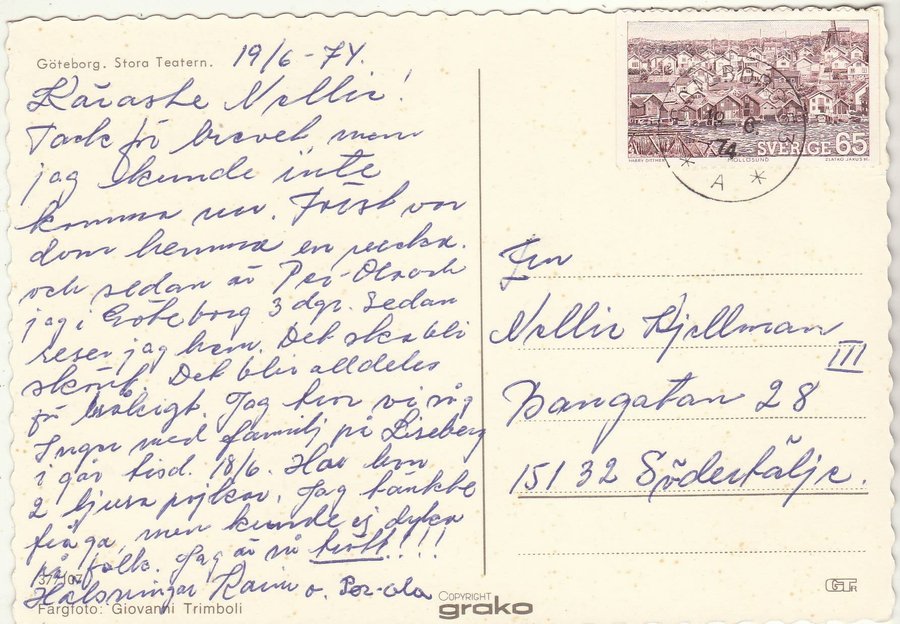 Göteborg. Stora Teatern.
19/6 - 74.
Käraste Nellie!
Tack för brevet men
jag kunde inte
komma nu. Först var
dom hemma en vecka.
och sedan är Per-Ola och
jag i Göteborg 3 dgr. Sedan
reser jag hem. Det ska bli
skönt. Det blir alldeles
för tråkigt. Jag tror vi såg
Inger med familj på Liseberg
i går tisd. 18/6. Har hon
2 ljusa pojkar. Jag tänkte
fråga, men kunde ej dyka
på folk. Jag är så trött!!!!
Hälsningar Karin o. Per-Ola
Färgfoto: Giovanni Trimboli
COPYRIGHT
grako
SVERIGE 65
HARRY DITTMER MOLLÖSUND ZLATKO JAKUS SC
6
74
* A *
Fru
Nellie Kjellman
III
Bangatan 28
151 32 Södertälje.
GT